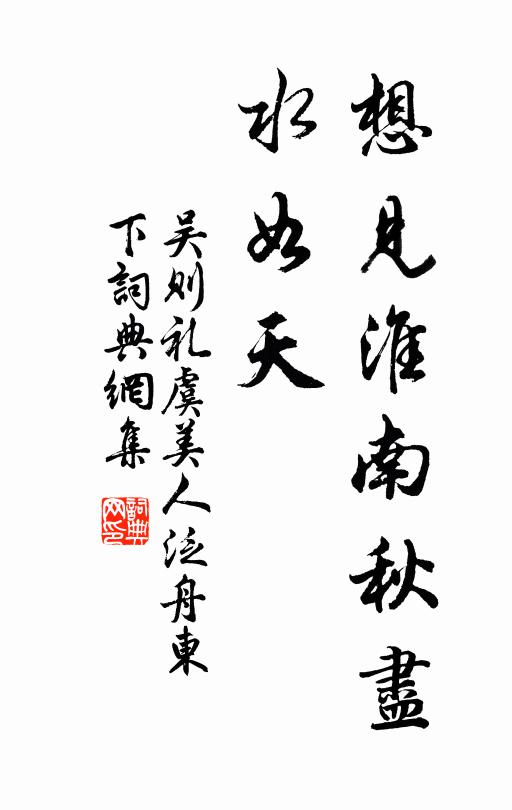 想見淮南秋盡
水如天
吴则礼虞美人泛舟東
下詞典網集
詞典
网印